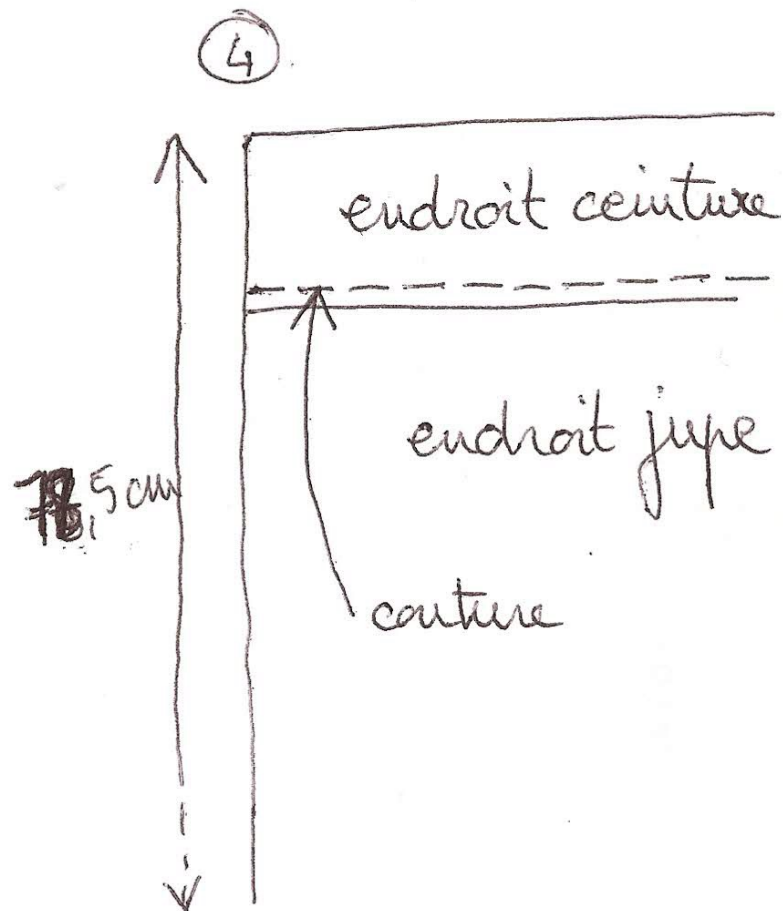 4
endroit ceinture
endroit jupe
,5 cm
couture